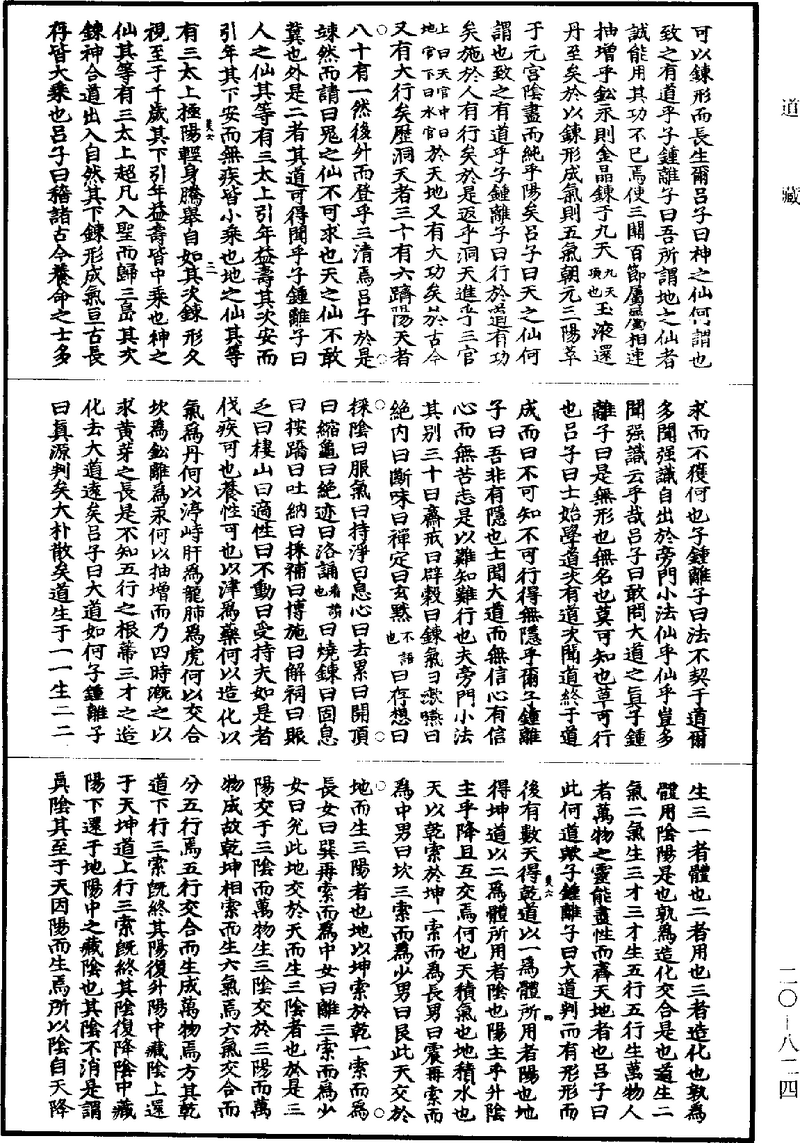 道藏
二〇—八二四
可以鍊形而長生爾呂子曰神之仙何謂也
致之有道乎子鍾離子曰吾所謂地之仙者
誠能用其功不已焉使三關百節屬屬相連
抽增乎鈆汞則金晶鍊于九天九天項也玉液還
丹至矣於以鍊形成氣則五氣朝元三陽萃
于元宮陰盡而純乎陽矣呂子曰天之仙何
謂也致之有道乎子鍾離子曰行於道有功
矣施於人有行矣於是返乎洞天進乎三官
上曰天官中曰地官下曰水官於天地又有大功矣於古今
又有大行矣歷洞天者三十有六躋陽天者
八十有一然後外而登乎三清焉呂子於是
竦然而請曰鬼之仙不可求也天之仙不敢
兾也外是二者其道可得聞乎子鍾離子曰
人之仙其等有三太上引年益壽其次安而
引年其下安而無疾皆小乘也地之仙其等
有三太上極陽輕身騰舉自如其次鍊形久
視至于千歲其下引年益壽皆中乘也神之
仙其等有三太上超凡入聖而歸三島其次
鍊神合道出入自然其下鍊形成氣亘古長
存皆大乘也呂子曰稽諸古今養命之士多
求而不獲何也子鍾離子曰法不契于道爾
多聞强識自出於旁門小法仙乎仙乎豈多
聞强識云乎哉呂子曰敢問大道之真子鍾
離子曰是無形也無名也莫可知也莫可行
也呂子曰士始學道次有道次聞道終于道
成而曰不可知不可行得無隱乎爾子鍾離
子曰吾非有隱也士聞大道而無信心有信
心而無苦志是以難知難行也夫旁門小法
其別三十曰齋戒曰辟穀曰鍊氣曰漱嚥曰
絶内曰斷味曰禪定曰玄黙不語也曰存想曰
採陰曰服氣曰持淨曰息心曰去累曰開頂
曰縮龜曰絶迹曰洛誦看讀也曰燒鍊曰固息
曰按蹻曰吐納曰採補曰博施曰解祠曰賑
乏曰棲山曰適性曰不動曰受持夫如是者
伐疾可也養性可也以津為藥何以造化以
氣為丹何以渟峙肝為龍肺為虎何以交合
坎為鈆離為汞何以抽增而乃四時溉之以
求黄芽之長是不知五行之根蔕三才之造
化去大道遠矣呂子曰大道如何子鍾離子
曰真源判矣大朴散矣道生于一一生二二
生三一者體也二者用也三者造化也孰為
體用陰陽是也孰為造化交合是也道生二
氣二氣生三才三才生五行五行生萬物人
者萬物之靈能盡性而齊天地者也呂子曰
此何道歟子鍾離子曰大道判而有形形而
後有數天得乾道以一為體所用者陽也地
得坤道以二為體所用者陰也陽主乎升陰
主乎降且互交焉何也天積氣也地積水也
天以乾索於坤一索而為長男曰震再索而
為中男曰坎三索而為少男曰艮此天交於
地而生三陽者也地以坤索於乾一索而為
長女曰巽再索而為中女曰離三索而為少
女曰兊此地交於天而生三陰者也於是三
陽交于三陰而萬物生三陰交於三陽而萬
物成故乾坤相索而生六氣焉六氣交合而
分五行焉五行交合而生成萬物焉方其乾
道下行三索旣終其陽復升陽中藏陰上還
于天坤道上行三索旣終其陰復降陰中藏
陽下還于地陽中之藏陰也其陰不消是謂
真陰其至于天因陽而生焉所以陰自天降